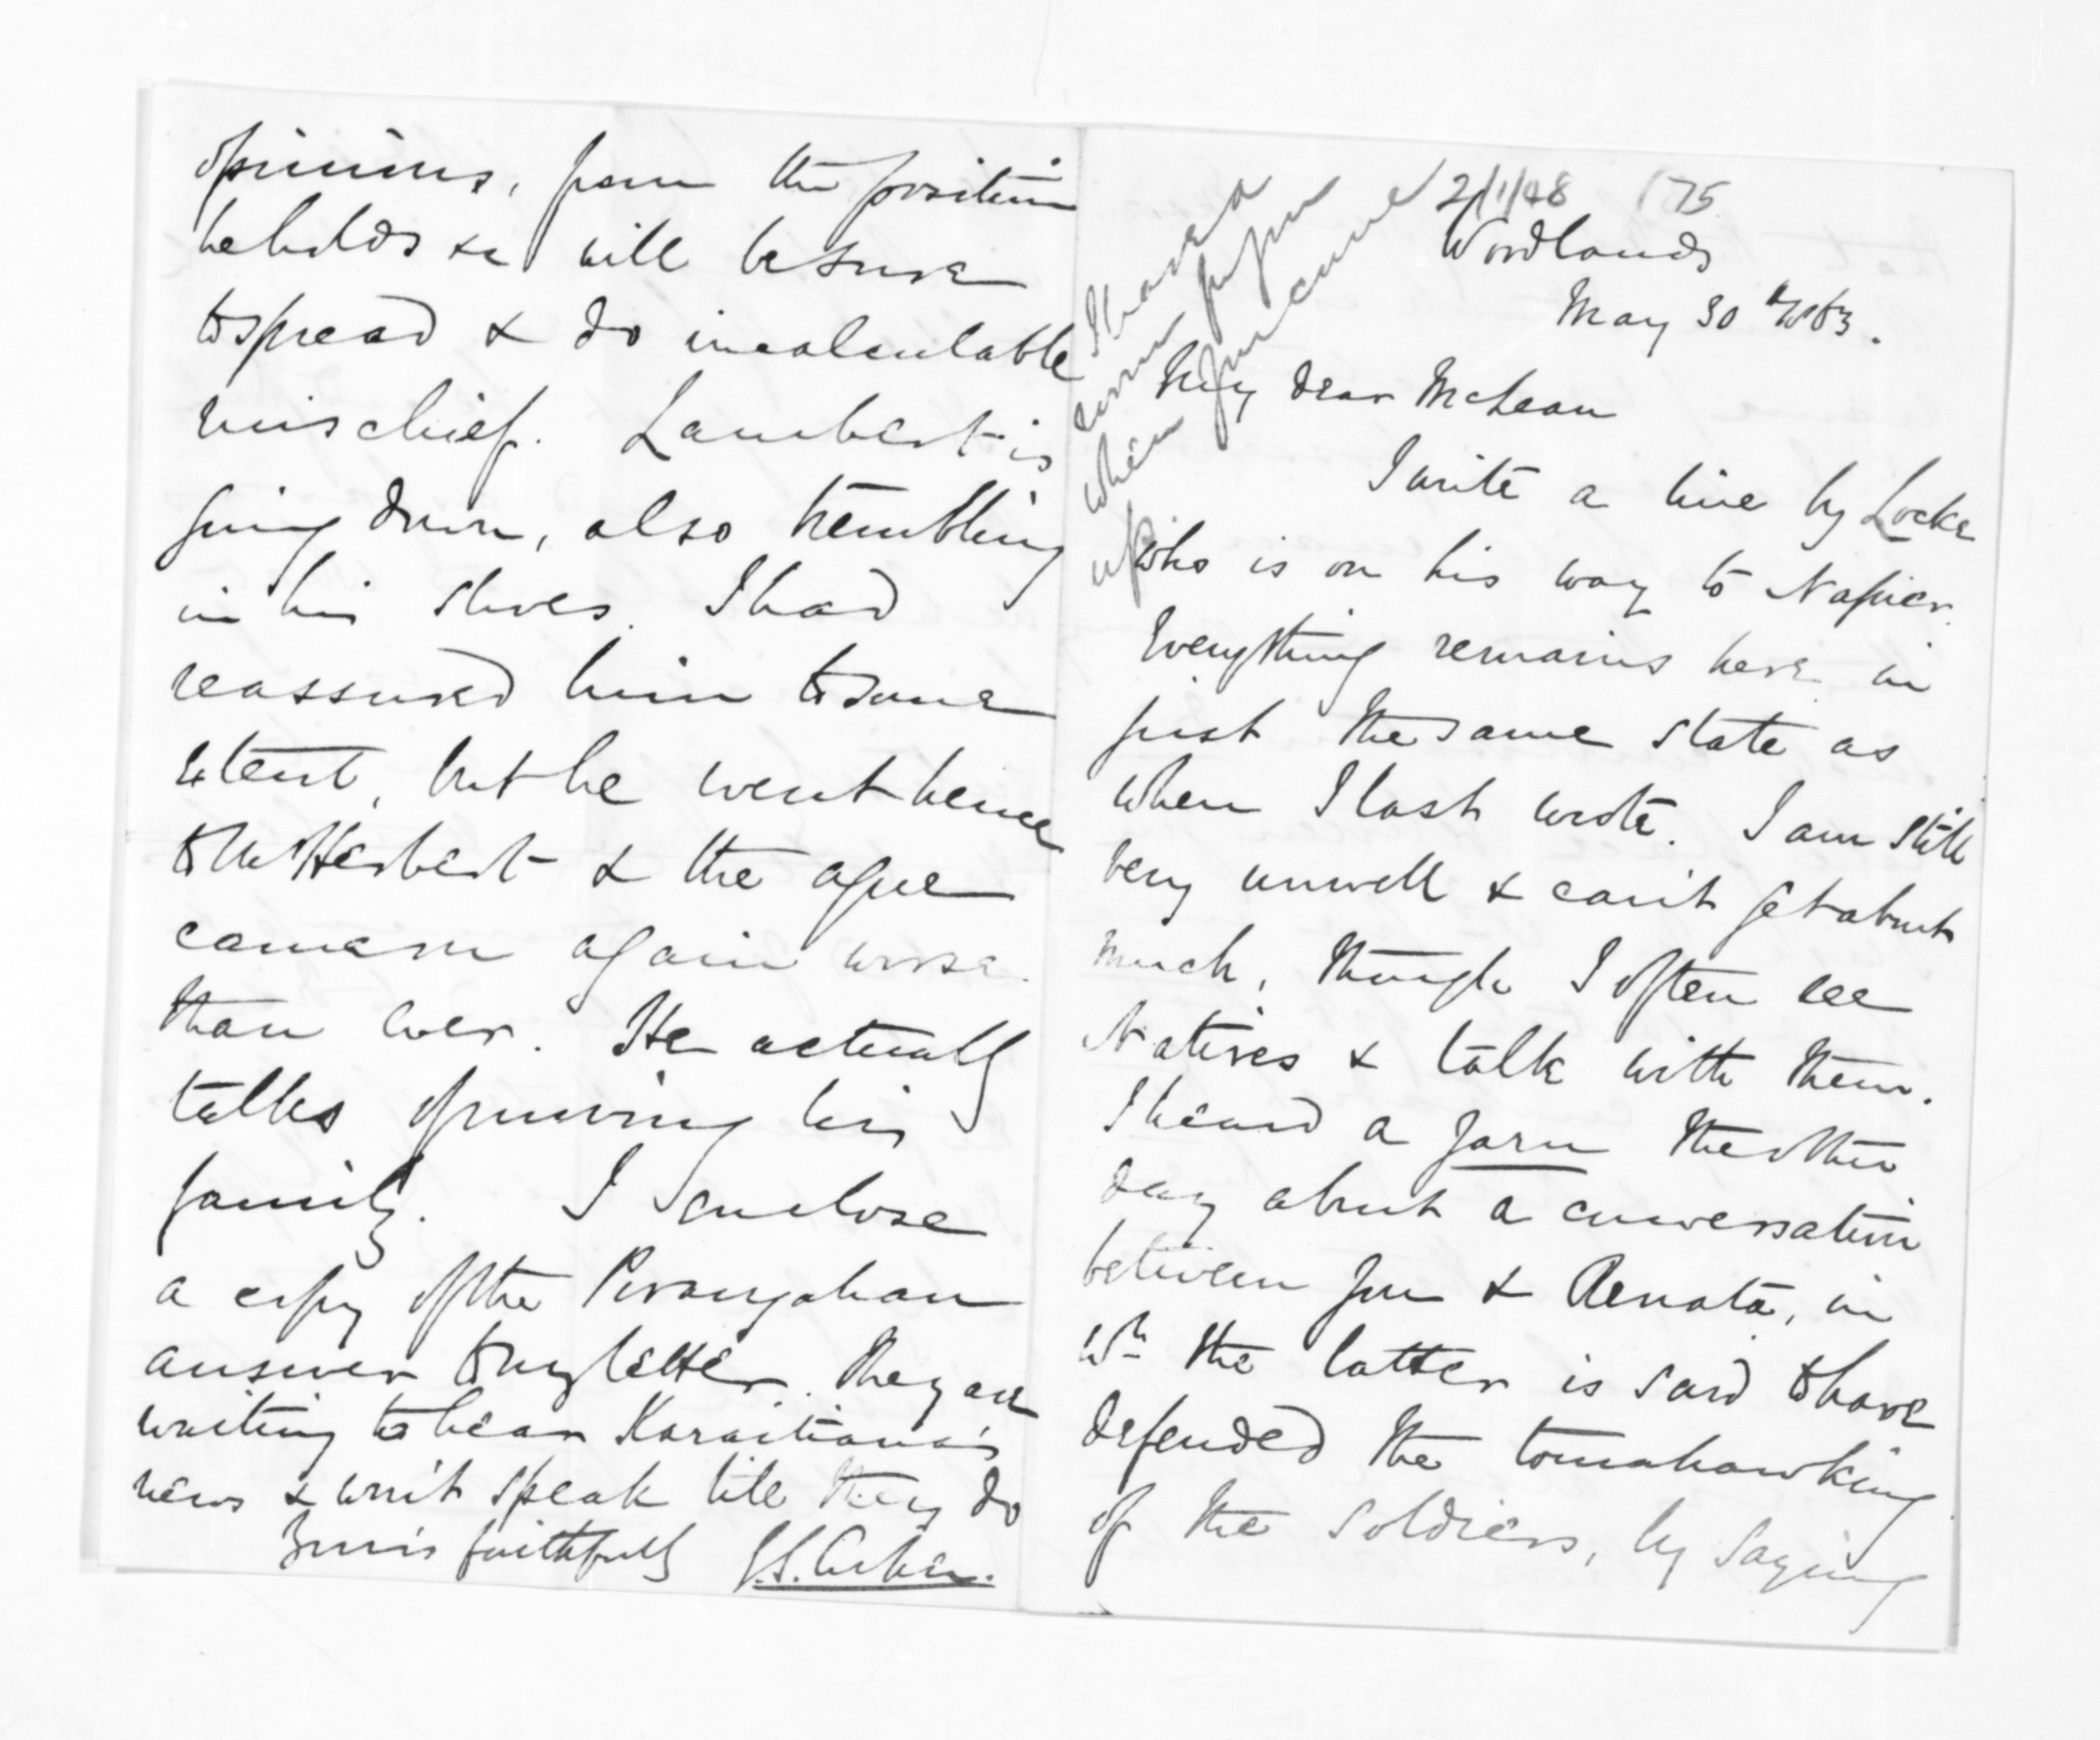 2/1/48 175
Woodlands
May 30th 1863.
My dear McLean
I write a line by Locke
who is on his way to Napier.
Everything remains here in
just the same state as
when I last wrote. I am still
very unwell & can't get about
much, though I often see
Natives & talk with them.
I heard a yarn the other
day about a conversation
between you & Renata, in
wh the latter is said to have
defended the tomahawking
of the soldiers, by saying
I have a
when
up
opinions, from the position
he holds &c will be sure
to spread & do incalculable
mischief. Lambert is
going down, also trembling
in his shoes. I had
reassured him to some
extent, but he went hence
to McHerbert & the ague
came on again worse
than ever. He actually
talks of moving his
family. I enclose
a copy of the Porangahau
answer to my letter. They are
waiting to hear Karaitiana's
news & won't speak till they do
Yours faithfully